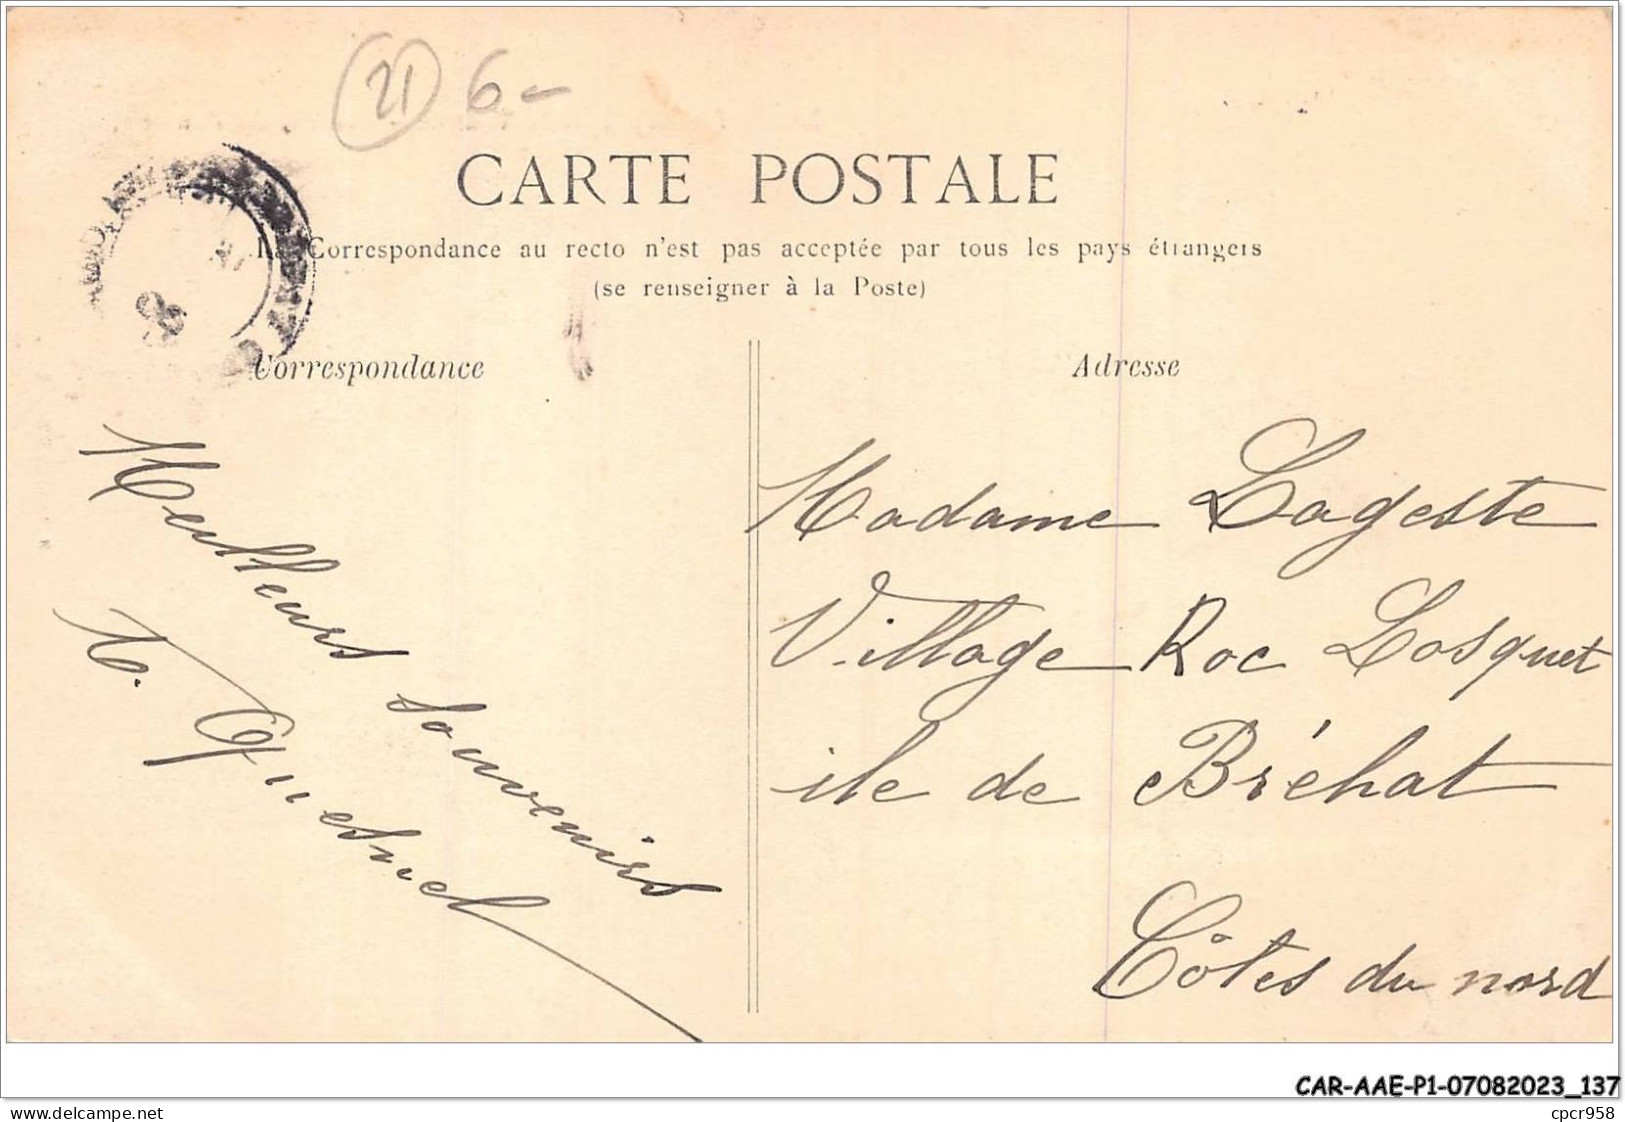 21 6-
CARTE POSTALE
La Correspondance au recto n'est pas acceptée par tous les pays étrangers
(se renseigner à la Poste)
Correspondance
Adresse
Meilleurs souvenirs
Quesnel
Madame Lageste
Village Roc Losquet
ile de Bréhat
Côtes du nord
CAR-AAE-P1-07082023_137
www.delcampe.net
cpcr958